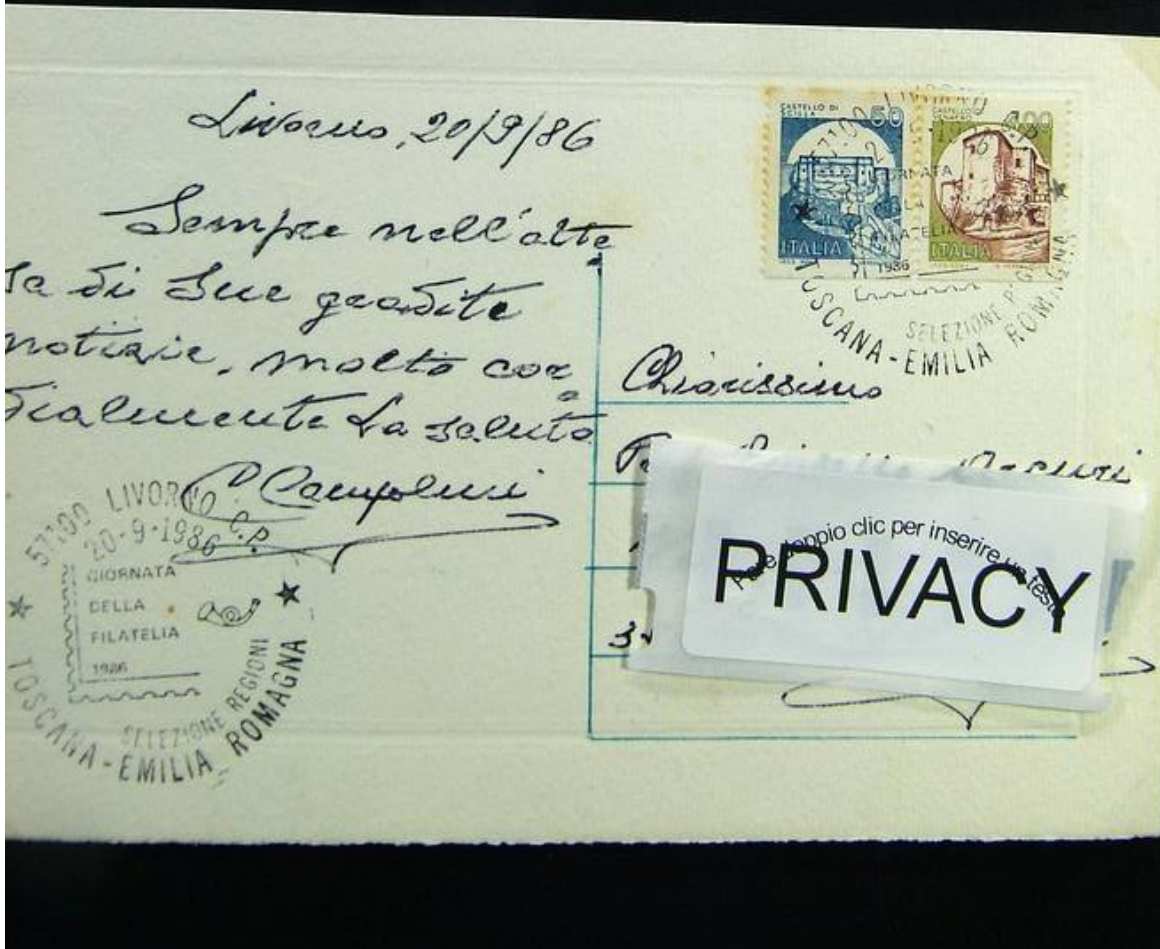 Livorno, 20/9/86
Sempre nell'atte
sa di Sue gradite
notizie, molto cor
dialmente La saluto
57100 LIVORNO C.P.
20-9-1986
GIORNATA
DELLA
FILATELIA
1986
SELEZIONE REGIONI
TOSCANA-EMILIA ROMAGNA
CASTELLO DI
SCILLA
50
ITALIA
CASTELLO DI
400
ITALIA
57100 LIVORNO
GIORNATA
DELLA
FILATELIA
1986
SELEZIONE REGIONI
TOSCANA-EMILIA ROMAGNA
Chiarissimo
doppio clic per inserire un testo
PRIVACY